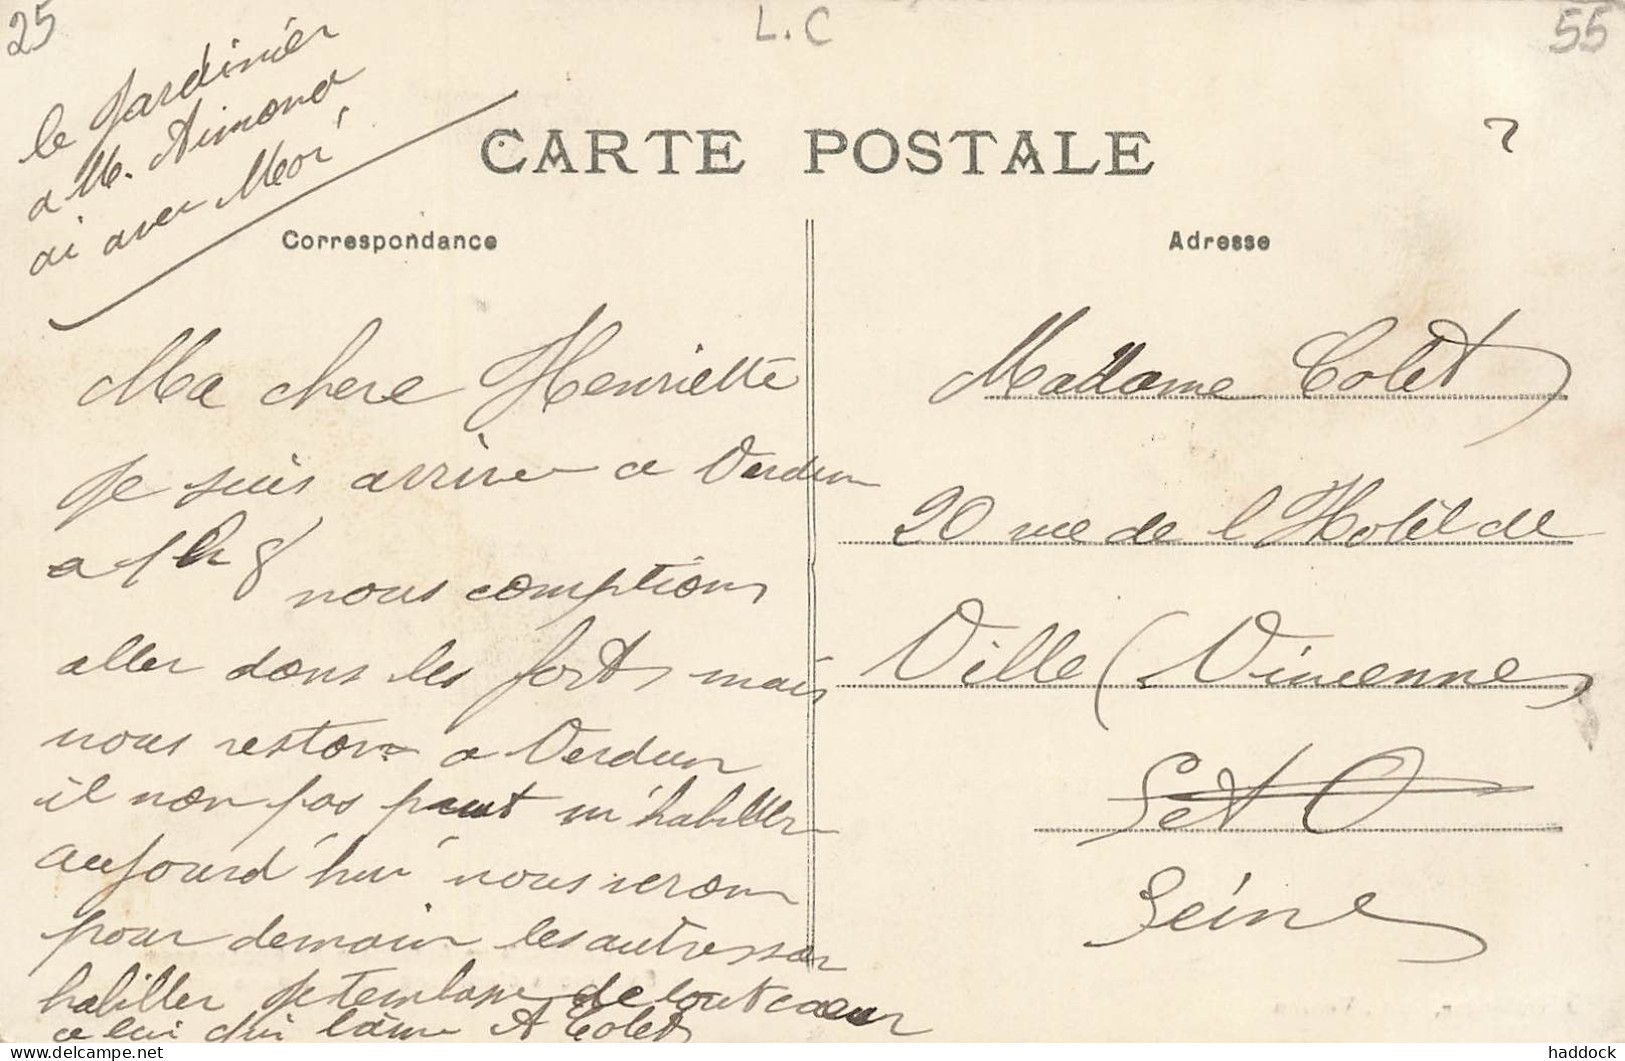 25
L.C
55
le Jardinier
a M. Aimond
ai avec Moi
CARTE POSTALE
Correspondance
Adresse
Ma chere Henriette
je suis arrive a Verdun
a 1 h 8 nous comptions
aller dans les forts mais
nous restons a Verdun
il non pas peut m'habiller
aujourd'hui nous serons
pour demain les autres son
habiller je tembasse de tout cœur
a lui qui t'aime A Colet
Madame Colet
20 rue de l Hotel de
Ville (Vincennes
Set O
Seine
haddock